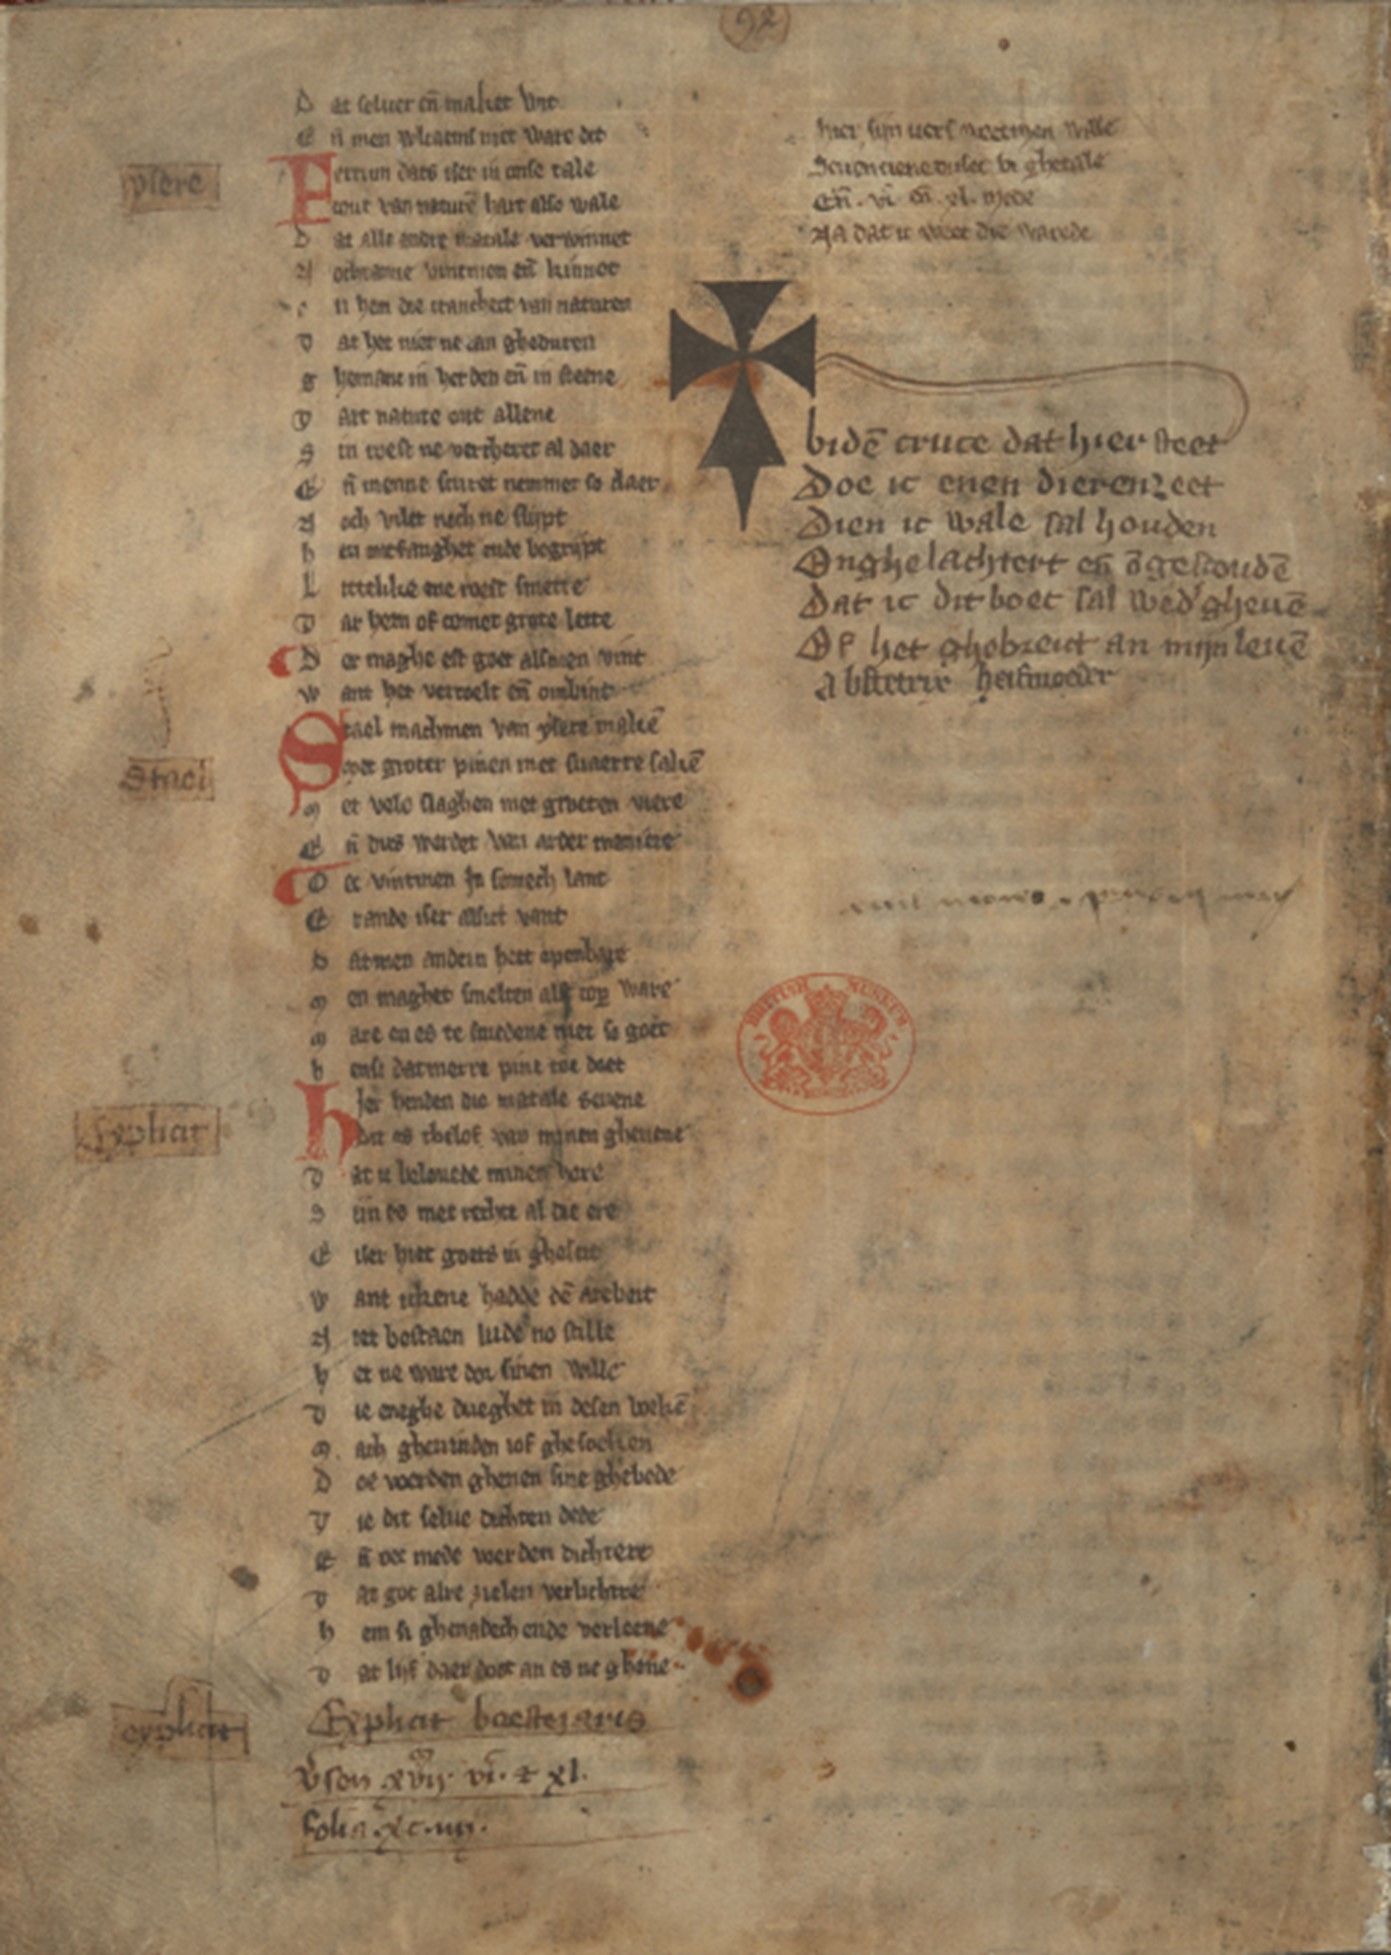 92
D at seluer en̄ maket wit
E n̄ men niet ware dit
ysere
F errum dats iser in onse tale
cout van naturē hart also wale
D at alle andre matale verwinnet
N ochtanne vintmen en̄ kinnet
i n hem die crancheit van naturen
D at het niet ne can gheduren
g hemanc in herden en̄ in steene
D aer nature out allene
S in roest ne verteert al daer
E n̄ menne sciret nemmer so claer
N och vilet noch ne slijpt
h en ontfanghet ende begrijpt
L ictelike ene roest smette
D ar hem of comet grote lette
D er maghe est goet alsmen vint
w ant het vercoelt en̄ ombint
Stael
S tael machmen van ysere makē
Met groter pinen met suaerre sakē
M et vele slaghen met groten viere
E n̄ dus werdet van arder maniere
O ec vintmen in somech lant
E rande iser alsict vant
D atmen andein heet openbare
M en maghet smelten als coper ware
M are en es te smedene niet so goet
h enst datmerre pine toe doet
Explicit
H ier henden die matale seuene
dit es tbelof van minen gheuene
D at ic belouede minen here
S iin es met rechte al die ere
E iser hiet goets in gheseit
W ant ickene hadde dē arebeit
N iet bestaen lude no stille
h et ne ware dor sinen wille
D ie eneghe dueghet in desen wekē
M ach gheuinden iof ghesoeken
D oe werden ghenen sine ghebede
D ie dit selue dichten dede
E n̄ oec mede werden dichtere
D at got alre zielen verlichtre
h em si ghenadech ende verleene
D at lijf daer doot an es ne ghene
explicit
Explicit baestiaris
v̄sen xvijᵐ vi. et xl.
folia xc.iiii.
hier sijn uers weetmen wille
Seuentiene dusēt bi ghetale
En̄ .vi. en̄ .xl. mede
Na dat ic weet die warede
bidē cruce dat hier steet
Doe ic enen dieren eet
Dien ic wale sal houden
Onghelachtert en̄ ōgescoudē
Dat ic dit boec sal wed'gheuē
Of het ghebreict an mijn leuē
Abstetrix heifmoeder
BRITISH MUSEUM